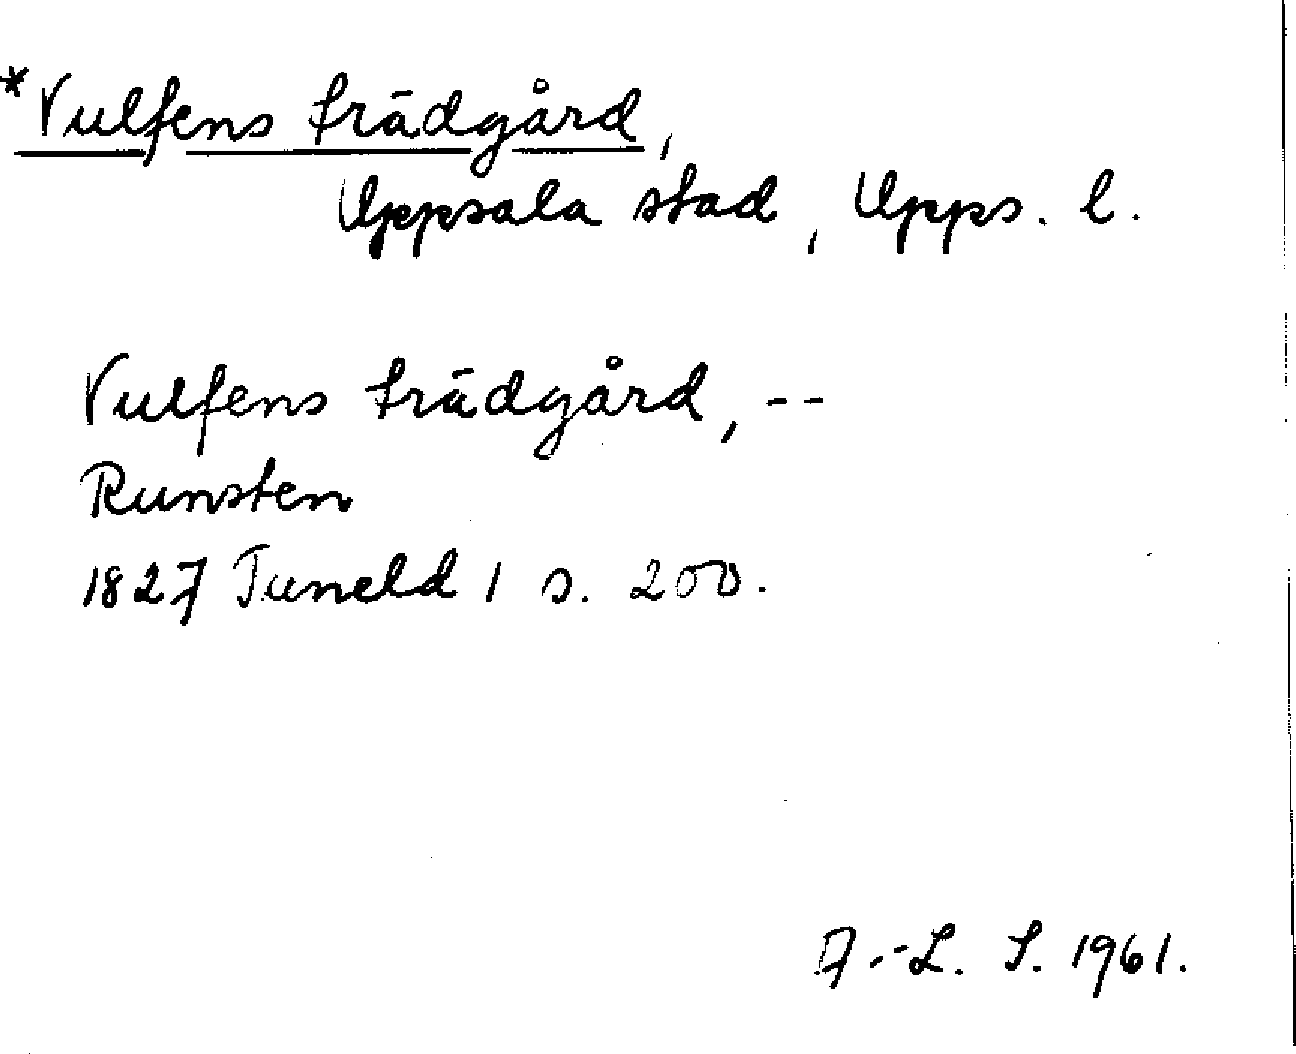 *Vulfens trädgård,
Uppsala stad, Upps. l.
Vulfens trädgård, --
Runsten
1827 Tuneld 1 s. 200.
A.-L. S. 1961.